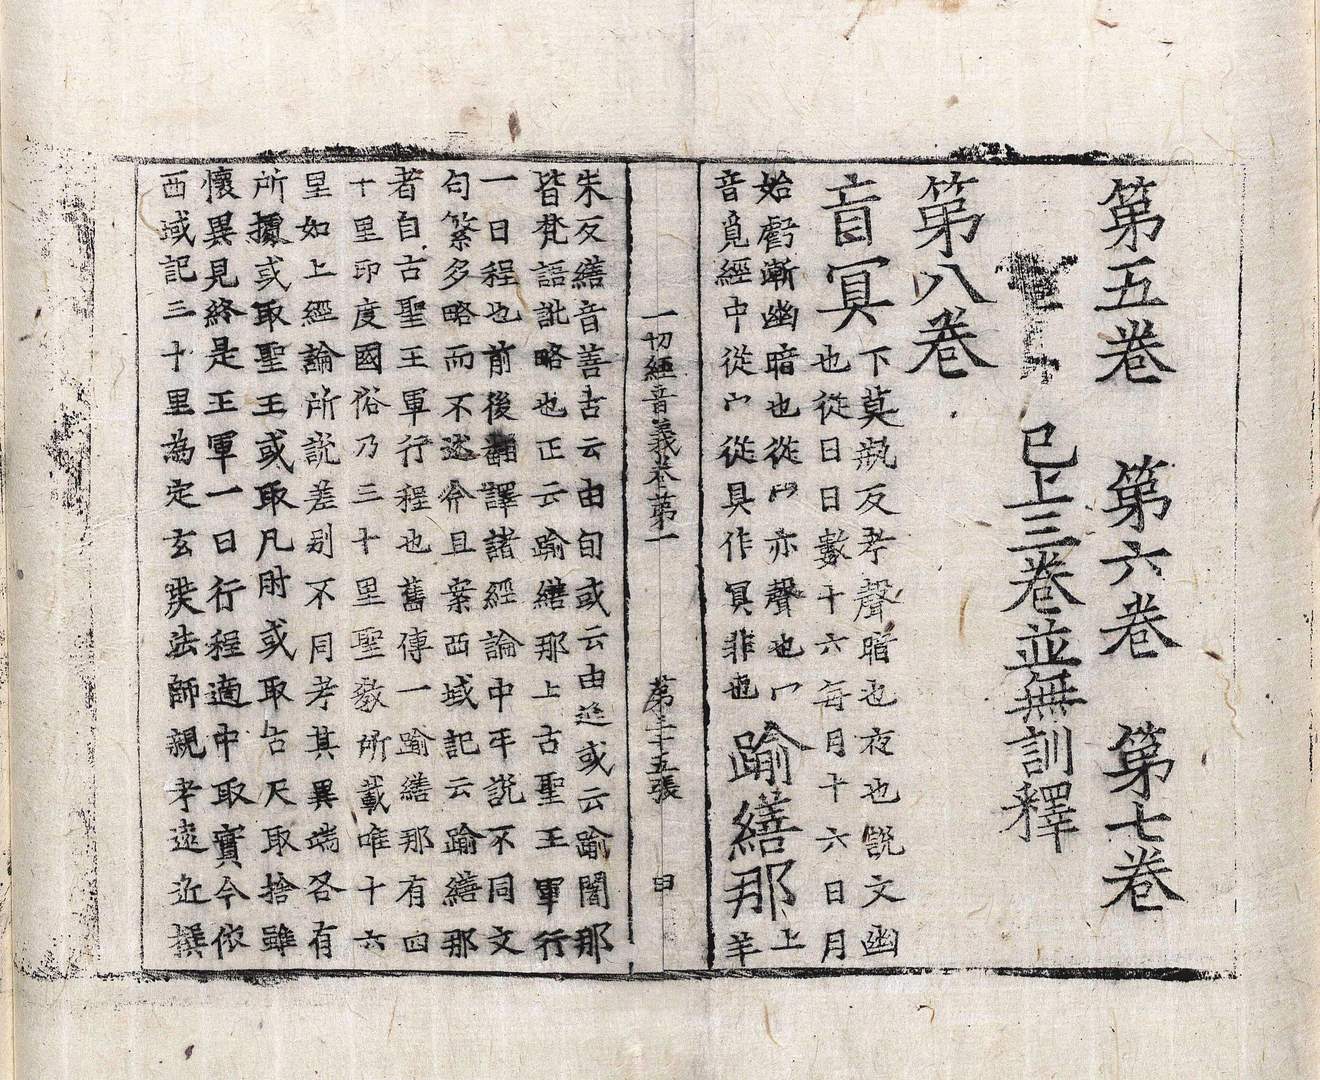 第五卷　第六卷　第七卷
已上三卷並無訓釋
第八卷
盲冥
下莫瓶反考聲暗也夜也說文幽
也從日日數十六每月十六日月
始虧漸幽暗也從冖冖亦聲也冖
音覓經中從宀從具作冥非也
踰繕那
上羊
朱反繕音善古云由旬或云由延或云踰闍那
皆梵語訛略也正云踰繕那上古聖王軍行
一日程也前後翻譯諸經論中互說不同文
句繁多略而不述今且案西域記云踰繕那
者自古聖王軍行程也舊傳一踰繕那有四
十里印度國俗乃三十里聖教所載唯十六
里如上經論所說差別不同考其異端各有
所據或取聖王或取凡肘或取古尺取捨雖
懷異見終是王軍一日行程適中取實今依
西域記三十里為定玄奘法師親考遠近撰
一切經音義卷第一　第三十五張　甲